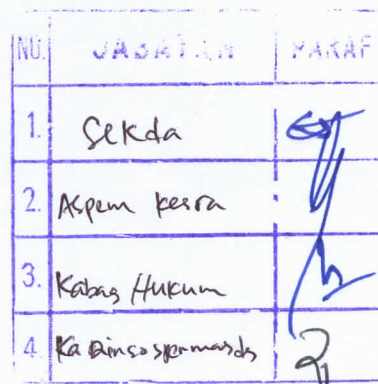 NO. JABATAN PARAF
1. Sekda
2. Aspem kesra
3. Kabag Hukum
4. Ka Dinsospermasds